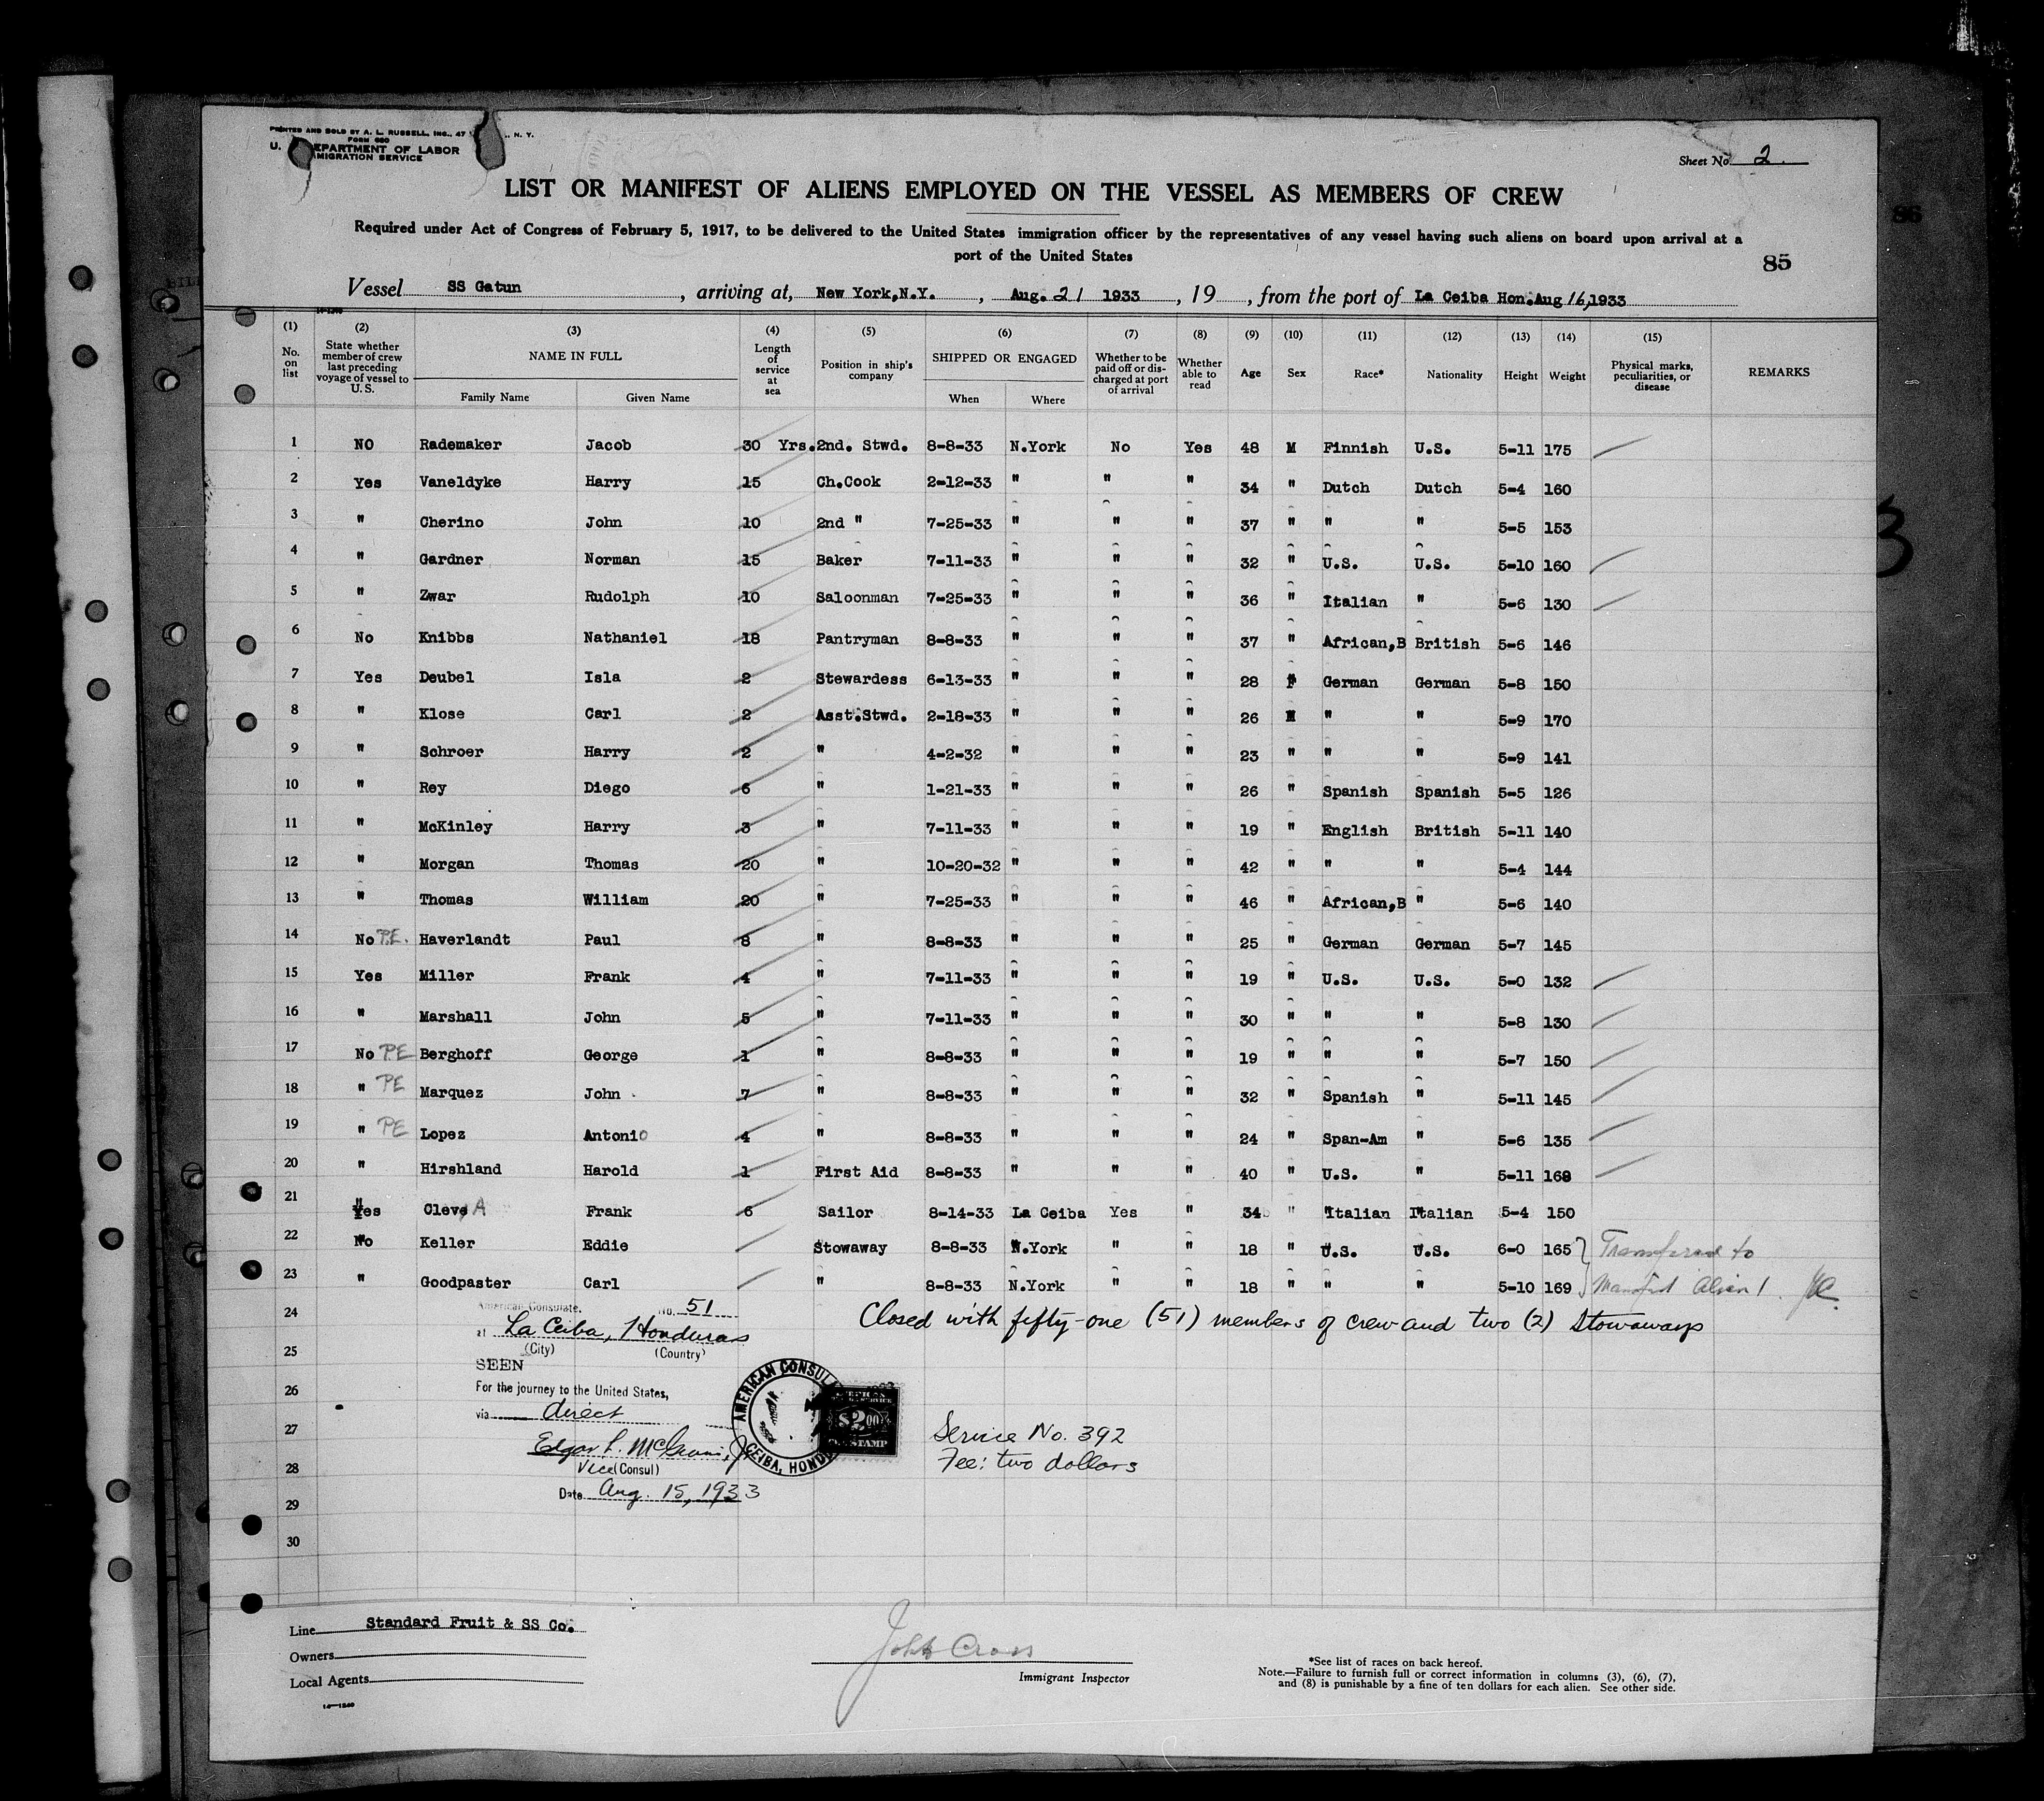 PRINTED AND SOLD BY A. L. RUSSELL, INC., 47 ., N. Y.
FORM 680
U. EPARTMENT OF LABOR
MIGRATION SERVICE
Sheet No 2.
LIST OR MANIFEST OF ALIENS EMPLOYED ON THE VESSEL AS MEMBERS OF CREW
86
Required under Act of Congress of February 5, 1917, to be delivered to the United States immigration officer by the representatives of any vessel having such aliens on board upon arrival at a
port of the United States
85
Vessel SS Gatun , arriving at, New York,N.Y. , Aug. 21 1933 , 19 , from the port of La Ceiba Hon.Aug 16,1933
14-1240
(1) (2) (3) (4) (5) (6) (7) (8) (9) (10) (11) (12) (13) (14) (15)
No. on list State whether member of crew last preceding voyage of vessel to U.S. NAME IN FULL Family Name Given Name Length of service at sea Position in ship's company SHIPPED OR ENGAGED When Where Whether to be paid off or discharged at port of arrival Whether able to read Age Sex Race* Nationality Height Weight Physical marks, peculiarities, or disease REMARKS
1 NO Rademaker Jacob 30 Yrs. 2nd. Stwd. 8-8-33 N.York No Yes 48 M Finnish U.S. 5-11 175
2 Yes Vaneldyke Harry 15 Ch.Cook 2-12-33 " " " 34 " Dutch Dutch 5-4 160
3 " Cherino John 10 2nd " 7-25-33 " " " 37 " " " 5-5 153
3
4 " Gardner Norman 15 Baker 7-11-33 " " " 32 " U.S. U.S. 5-10 160
5 " Zwar Rudolph 10 Saloonman 7-25-33 " " " 36 " Italian " 5-6 130
6 No Knibbs Nathaniel 18 Pantryman 8-8-33 " " " 37 " African,B British 5-6 146
7 Yes Deubel Isla 2 Stewardess 6-13-33 " " " 28 F German German 5-8 150
8 " Klose Carl 2 Asst.Stwd. 2-18-33 " " " 26 M " " 5-9 170
9 " Schroer Harry 2 " 4-2-32 " " " 23 " " " 5-9 141
10 " Rey Diego 6 " 1-21-33 " " " 26 " Spanish Spanish 5-5 126
11 " McKinley Harry 3 " 7-11-33 " " " 19 " English British 5-11 140
12 " Morgan Thomas 20 " 10-20-32 " " " 42 " " " 5-4 144
13 " Thomas William 20 " 7-25-33 " " " 46 " African,B " 5-6 140
14 No P.E. Haverlandt Paul 8 " 8-8-33 " " " 25 " German German 5-7 145
15 Yes Miller Frank 4 " 7-11-33 " " " 19 " U.S. U.S. 5-0 132
16 " Marshall John 5 " 7-11-33 " " " 30 " " " 5-8 130
17 No PE Berghoff George 1 " 8-8-33 " " " 19 " " " 5-7 150
18 " PE Marquez John 7 " 8-8-33 " " " 32 " Spanish " 5-11 145
19 " PE Lopez Antonio 4 " 8-8-33 " " " 24 " Span-Am " 5-6 135
20 " Hirshland Harold 1 First Aid 8-8-33 " " " 40 " U.S. " 5-11 168
21 Yes Cleve A Frank 6 Sailor 8-14-33 La Ceiba Yes " 34 " Italian Italian 5-4 150
22 No Keller Eddie Stowaway 8-8-33 N.York " " 18 " U.S. U.S. 6-0 165 Transferred to
23 " Goodpaster Carl " 8-8-33 N.York " " 18 " " " 5-10 169 Manifest Alien 1. JC
24 American Consulate. No. 51 Closed with fifty-one (51) members of crew and two (2) Stowaways
at La Ceiba, Honduras
(City) (Country)
25
SEEN
26 For the journey to the United States,
via direct
AMERICAN CONSUL
CEIBA, HONDU
$2.00
STAMP
27 Service No. 392
Edgar L. McGinnis, Jr
Fee: two dollars
28 Vice (Consul)
Date Aug. 15, 1933
29
30
Line Standard Fruit & SS Co.
Owners
Local Agents
14—1240
John Cross
Immigrant Inspector
*See list of races on back hereof.
Note.—Failure to furnish full or correct information in columns (3), (6), (7),
and (8) is punishable by a fine of ten dollars for each alien. See other side.